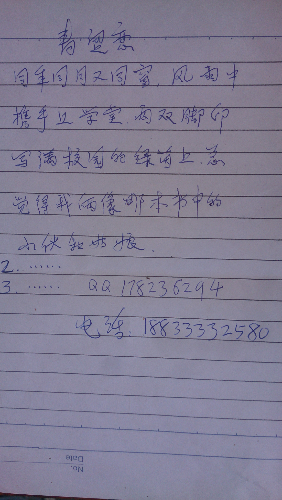 青恋
同年同月又同窗，风雨中
携手上学堂，两双脚印
写满校园的绿上，总
觉得我俩像那本书中的
小伙和姑娘．
2. ......
3. ...... QQ 178236294
电话：18833332580
No.
Date